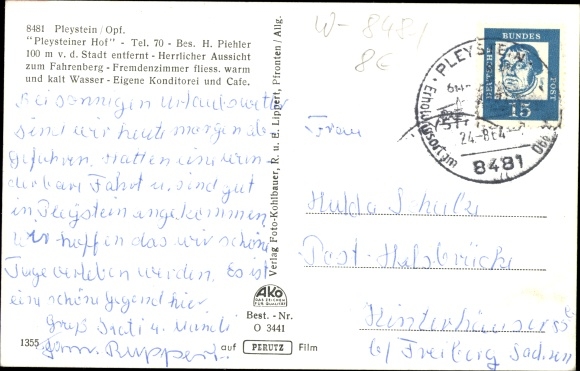 8481 Pleystein/Opf.
"Pleysteiner Hof" - Tel. 70 - Bes. H. Piehler
100 m v. d. Stadt entfernt - Herrlicher Aussicht
zum Fahrenberg - Fremdenzimmer fliess. warm
und kalt Wasser - Eigene Konditorei und Cafe.
Bei sonnigen Urlaubswetter
sind wir heute morgen ab
gefahren. Hatten eine wun
derbare Fahrt u. sind gut
in Pleystein angekommen
Wir hoffen das wir schöne
Tage verleben werden. Es ist
ein schöne Gegend hier
Gruß u.
Fam. Ruppert.
1355
Verlag Foto-Kohlbauer, R. u. E. Lippert, Pfronten/Allg.
AKO
DAS ZEICHEN
FÜR QUALITÄT
Best. - Nr.
O 3441
auf PERUTZ Film
W-8481
8€
DEUTSCHE BUNDES POST
15
PLEYSTEIN
Erholungsort
24-8 64
8481
Frau
Hulda Schulze
Post-Halsbrücke
Hinterhäuser
b/ Freiberg Sachsen